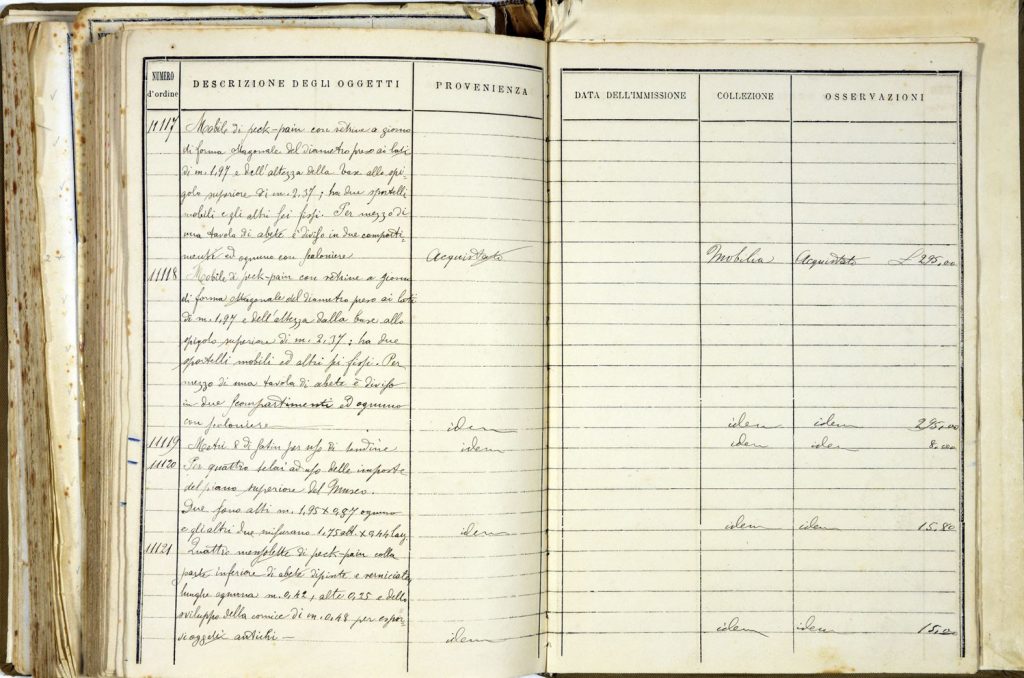 NUMERO d'ordine DESCRIZIONE DEGLI OGGETTI PROVENIENZA DATA DELL'IMMISSIONE COLLEZIONE OSSERVAZIONI
11117 Mobile di peck-pain con vetrine a giorno
di forma ottagonale del diametro preso ai lati
di m. 1,97 e dell'altezza della base allo spi-
golo superiore di m. 2,37; ha due sportelli
mobili e gli altri sei fissi. Per mezzo di
una tavola di abete è diviso in due comparti-
menti ed ognuno con scaloniere Acquistato Mobilia Acquistato £ 295,00
11118 Mobile di peck-pain con vetrine a giorno
di forma ottagonale del diametro preso ai lati
di m. 1,97 e dell'altezza dalla base allo
spigolo superiore di m. 2,37; ha due
sportelli mobili ed altri sei fissi. Per
mezzo di una tavola di abete è diviso
in due scompartimenti ed ognuno
con scaloniere idem idem idem 295,00
11119 Metri 8 di satin per uso di tendine idem idem idem 8,00
11120 Per quattro telai ad uso delle imposte
del piano superiore del Museo.
Due sono alti m. 1,95 x 0,87 ognuno
e gli altri due misurano 1,75 alt. x 0,44 larg. idem idem idem 15,80
11121 Quattro mensolette di peck-pain colla
parte inferiore di abete dipinte e verniciate,
lunghe ognuna m. 0,42, alte 0,25 e dello
sviluppo della cornice di m. 0,48 per espor-
vi oggetti antichi — idem idem idem 15,00